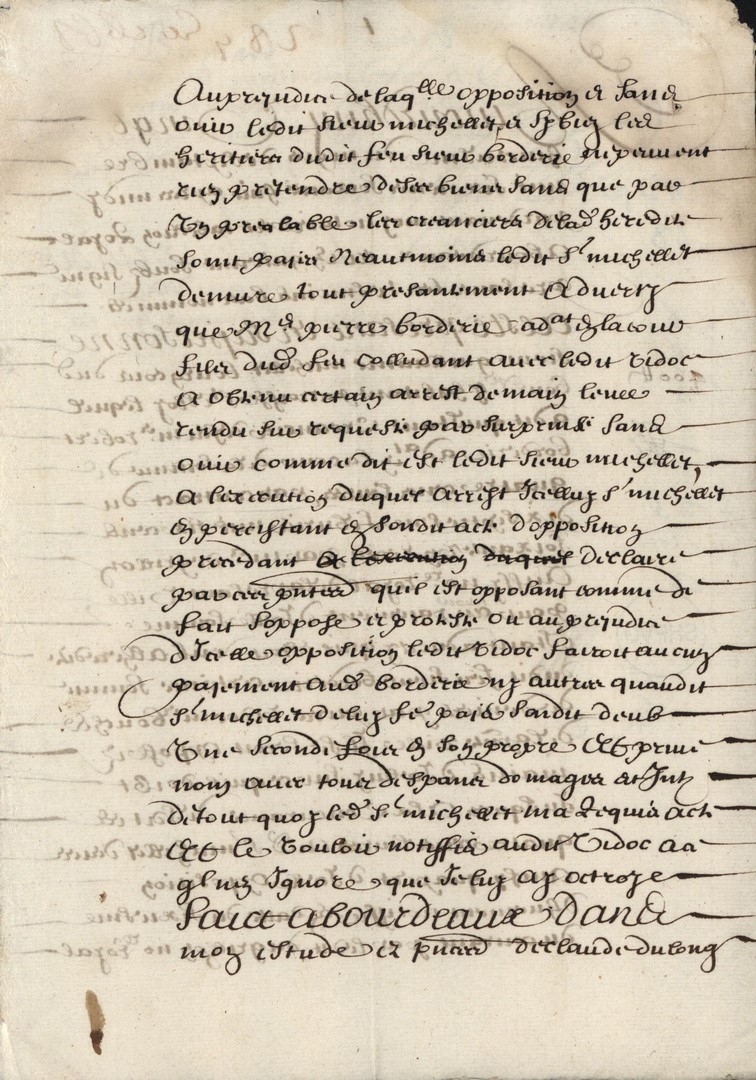 Au prejudice de laqlle opposition et sans
ouir ledit sieur michellet, et sy bien les
heritiers dudit feu sieur borderie ne peuvent
rien pretendre de ses biens sans que par
Un prealable les creanciers de lad heredite
soint paies Neautmoins ledit Sr michellet
demure tout presantement Adverty
que Me pierre borderie adat en la cour
fils dud feu colludant avec ledit Vidoc
A obtenu certain arrest de main levee
rendu sur requeste par surprinse sans
ouir comme dit est ledit sieur michellet,
A lexecution duquel arrest Icelluy Sr michellet
En percistant En sondit acte dopposition
precedant et lexecution duquel declaire
par ces pntes quil est opposant comme de
fait soppose et proteste ou au prejudice
dIcelle opposition ledit Vidoc fairoit aucun
paiement aud borderie ny autres quaudit
Sr michellet de luy fe paier sondit deub
Une seconde fois En son propre Et prive
nom avec tous despans domages et Intz
de tout quoy led Sr michellet ma Requis acte
Et le Vouloir notiffier audit Vidoc a ce
ql nen Ignore que Je luy ay octroye
Faict a bourdeaux Dans
mon estude ez pnces de claude dulong